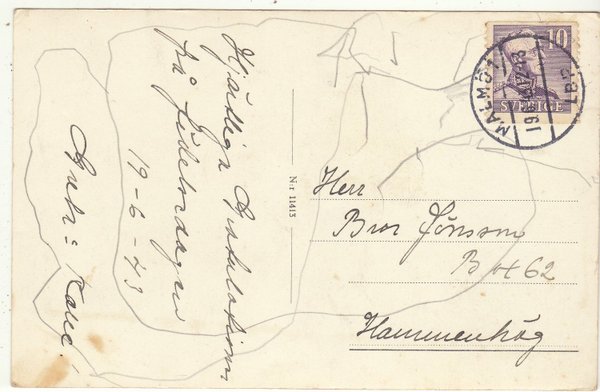 Hjärtliga Gratulationer
på födelsedagen
19-6-43
Nr 11413
10
SVERIGE
MALMÖ 1
LBR
Herr
Bror Jönsson
Box 62
Hammenhög